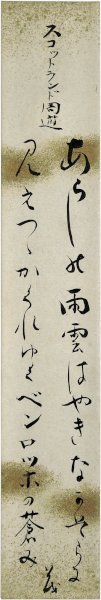 スコットランド周遊
あらしの雨雲はやきなかぞらに
見えつゝかくれゆくベンロッホの蒼み